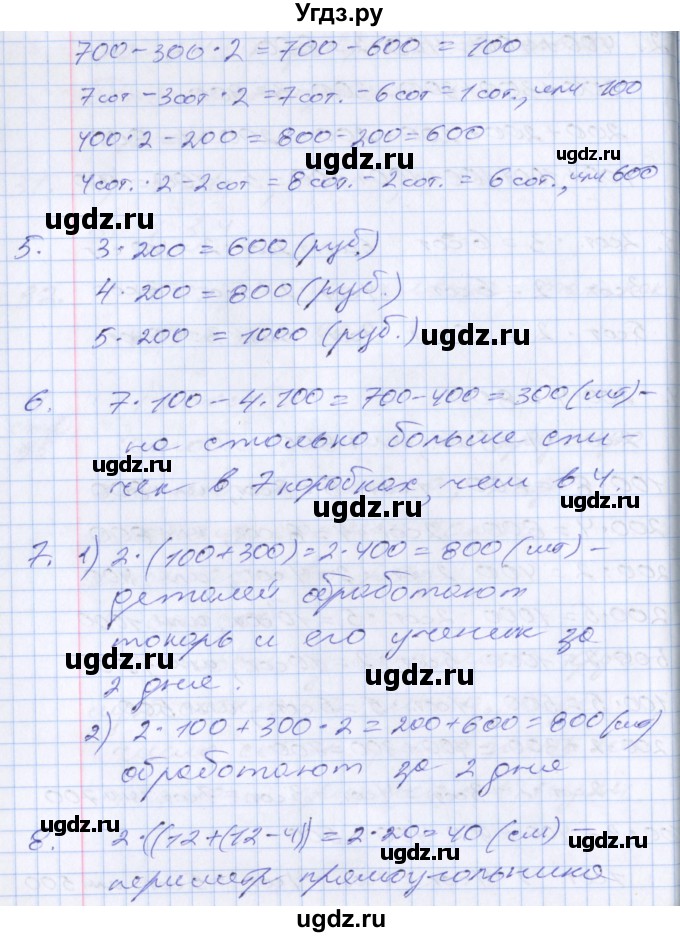 Угдз.ру
700 - 300 · 2 = 700 - 600 = 100
7сот - 3сот · 2 = 7сот. - 6сот = 1сот., или 100
400 · 2 - 200 = 800 - 200 = 600
ugdz.ru ugdz.ru
4сот. · 2 - 2сот = 8сот. - 2сот. = 6сот., или 600
ugdz.ru
5. 3 · 200 = 600 (руб.)
4 · 200 = 800 (руб.)
5 · 200 = 1000 (руб.) ugdz.ru
6. 7 · 100 - 4 · 100 = 700 - 400 = 300 (шт) -
на столько больше спи-
ugdz.ru
чек в 7 коробках, чем в 4.
ugdz.ru ugdz.ru
7. 1) 2 · (100 + 300) = 2 · 400 = 800 (шт) -
деталей обработают
токарь и его ученик за
ugdz.ru
2 дня.
ugdz.ru
2) 2 · 100 + 300 · 2 = 200 + 600 = 800 (шт)
обработают за 2 дня
ugdz.ru ugdz.ru
8. 2 · ((12 + (12 - 4)) = 2 · 20 = 40 (см) -
ugdz.ru
периметр прямоугольника
ugdz.ru